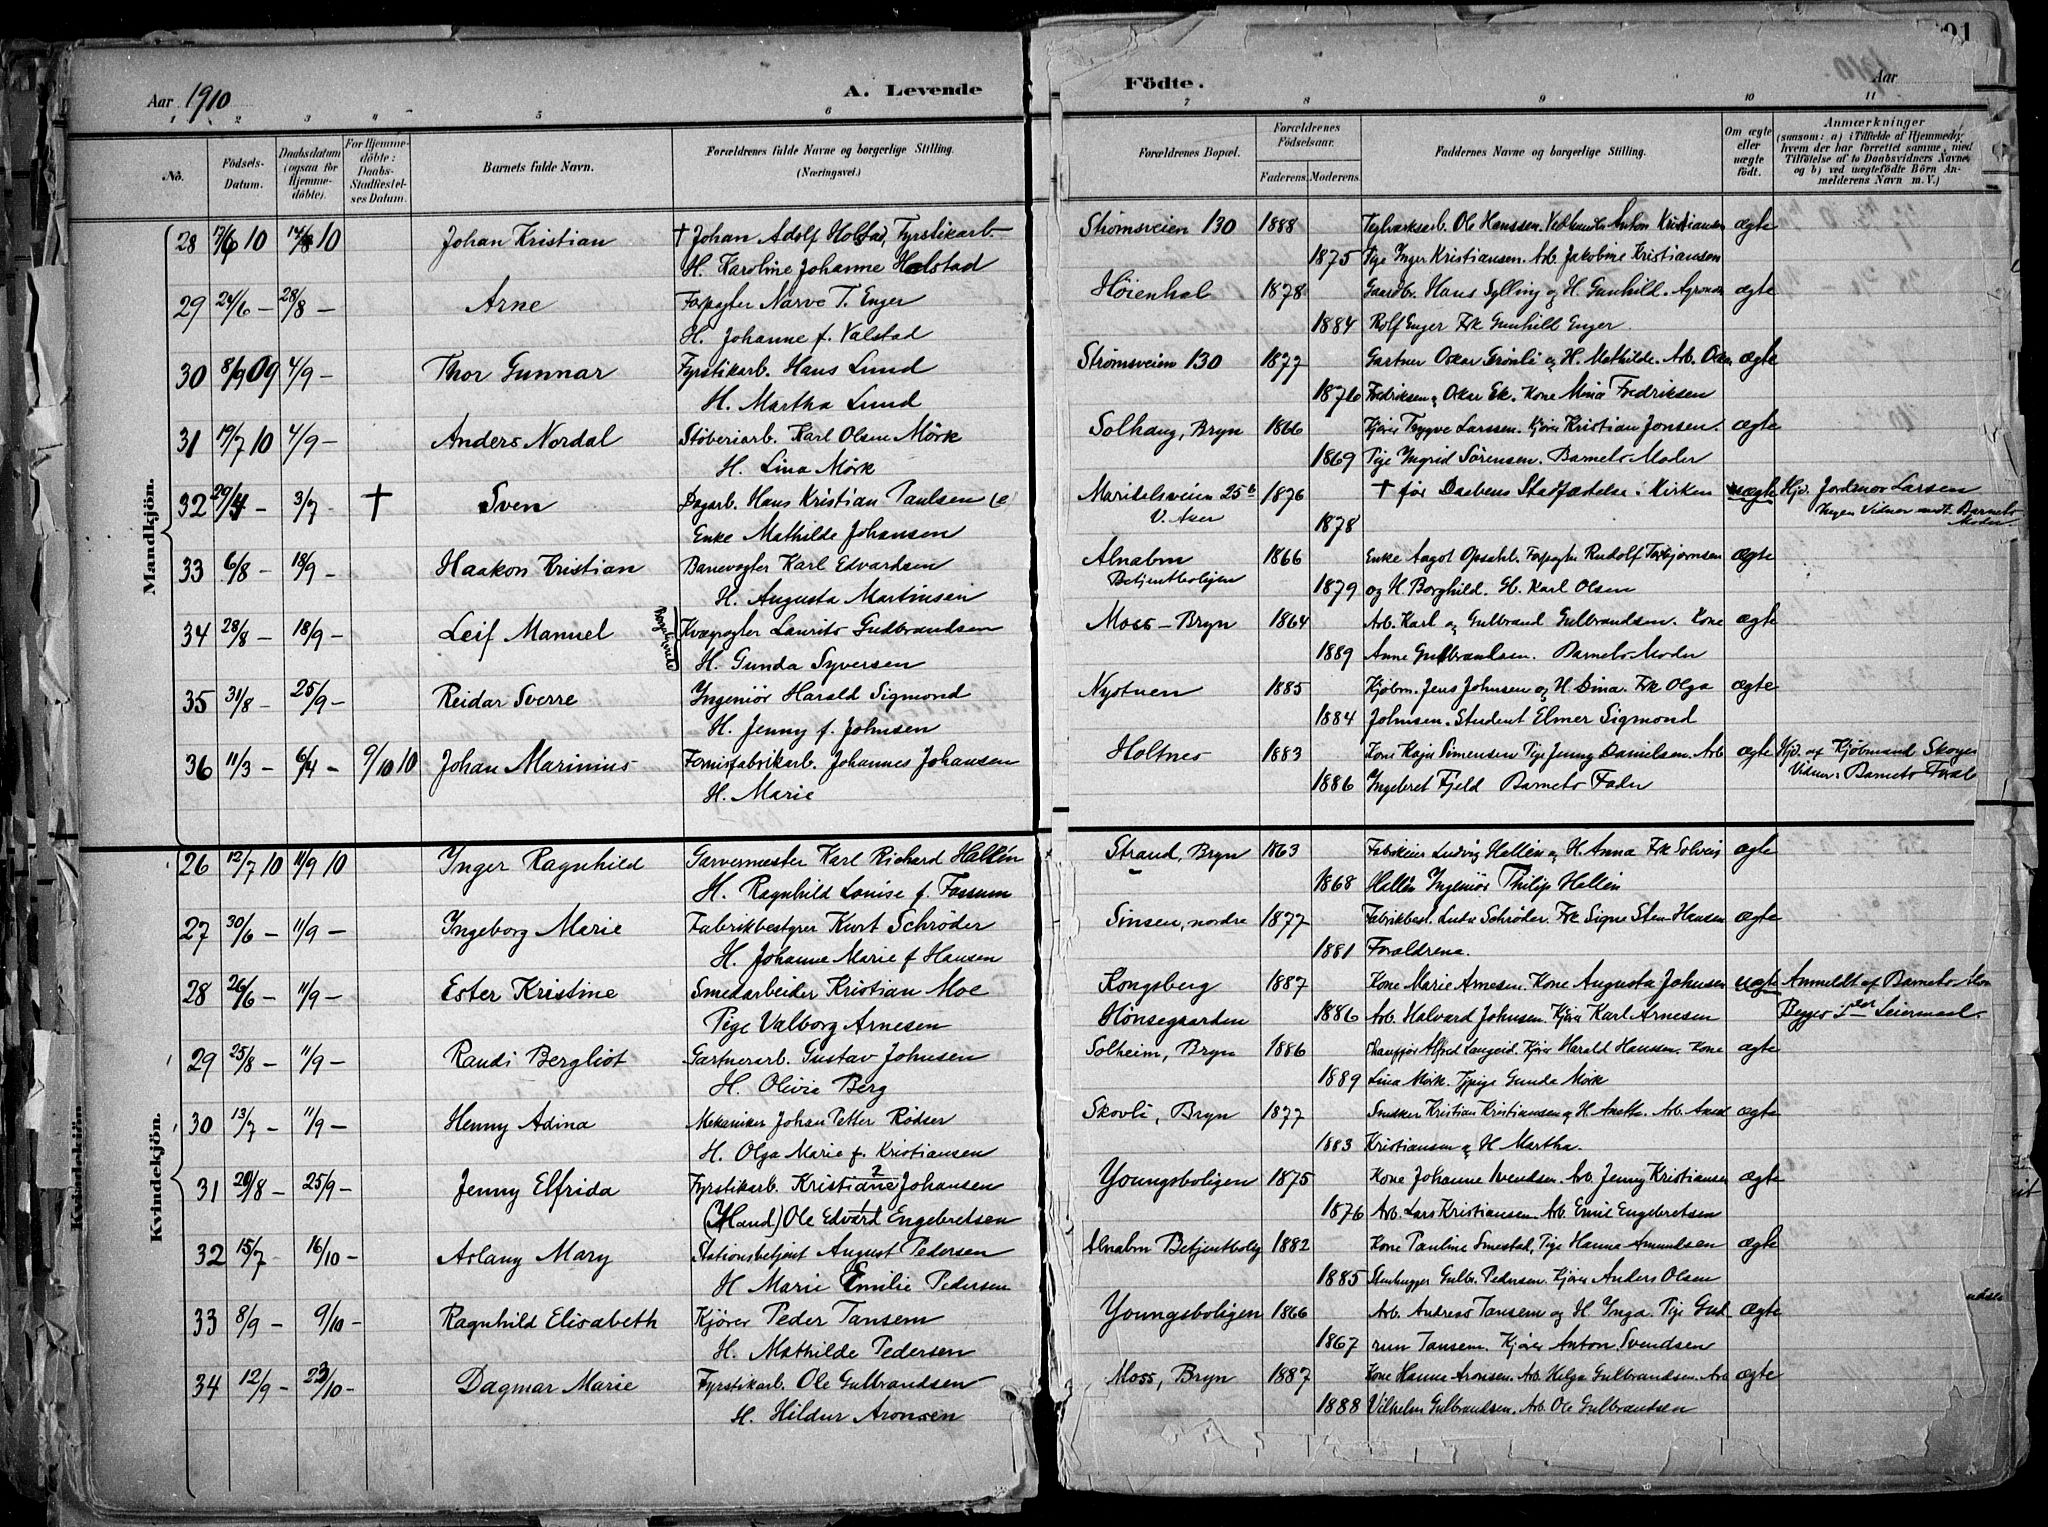 Aar 1910 A. Levende Födte. Aar
91
1 2 3 4 5 6 7 8 9 10 11
No. Födsels-Datum. Daabsdatum (ogsaa for Hjemmedöbte). For Hjemmedöbte: Daabs-Stadfæstelses Datum. Barnets fulde Navn. Forældrenes fulde Navne og borgerlige Stilling. (Næringsvei.) Forældrenes Bopæl. Forældrenes Födselsaar. Faderens. Moderens. Faddernes Navne og borgerlige Stilling. Om ægte eller uægte födt. Anmærkninger (saasom: a) i Tilfælde af Hjemmedøb hvem der har forrettet samme, med Tilföielse af to Daabsvidners Navne, og b) ved uægtefödte Börn Anmelderens Navn m. V.)
Mandkjön.
28 17/6 10 14/8 10 Johan Kristian † Johan Adolf Holstad, Fyrstikarb. Strømsveien 130 1888 Teglværksarb. Ole Hanssen. Anton Kristiansen ægte
H. Karoline Johanne Holstad 1875 Pige Inger Kristiansen. Arb. Jakobine Kristiansen
29 24/6 – 28/8 – Arne Forpagter Narve T. Enger Høienhal 1878 Gaardbr. Hans Sylling og H. Gunhild. Agronom ægte
H. Johanne f. Valstad 1884 Rolf Enger Frk Gunhild Enger.
30 8/9 09 4/9 – Thor Gunnar Fyrstikarb. Hans Lund Strømsveien 130 1877 Gartner Oskar Grønli og H. Mathilde. Arb. Oskar ægte
H. Martha Lund 1876 Fredriksen, Oskar Ek. Kone Mina Fredriksen
31 19/7 10 4/9 – Anders Nordal Støberiarb. Karl Olsen Mörk Solhaug, Bryn 1866 Kjører Trygve Larssen. Kjører Kristian Jonsen. ægte
H. Lina Mörk 1869 Pige Ingrid Sörensen. Barnets Moder
32 29/4 – 3/7 † Sven Dagarb. Hans Kristian Paulsen Maridalsveien 25 b 1876 † før Daabens Stadfæstelse i Kirken uægte Hjd. Jordmor Larsen
Enke Mathilde Johansen V. Aker 1878 Ingen Vidner undt. Barnets Moder
33 6/8 – 18/9 – Haakon Kristian Banevogter Karl Edvardsen Alnabru 1866 Enke Aagot Opsahl. Forpagter Rudolf Torbjørnsen ægte
H. Augusta Martinsen Betjentboligen 1879 og H Borghild. H. Karl Olsen
34 28/8 – 18/9 – Leif Manuel Kvægrøgter Laurits Gudbrandsen Moss – Bryn 1864 Arb. Karl og Gulbrand Gulbrandsen. Kone ægte
H. Gunda Syversen 1889 Anne Gulbrandsen. Barnets Moder
35 31/8 – 25/9 – Reidar Sverre Ingeniör Harald Sigmond Nystuen 1885 Kjøbm. Jens Johnsen og H. Dina. Frk Olga ægte
H. Jenny f. Johnsen 1884 Johnsen. Student Elmer Sigmond
36 11/3 – 6/4 – 9/10 10 Johan Marinius Fernisfabrikarb. Johannes Johansen Holtnes 1883 Kone Kaja Simensen Pige Jenny Danielsen. Arb ægte Hjd. af Kjøbmand Skoyer
H. Marie 1886 Ingebret Fjeld Barnets Fader Vidner: Barnets Foræl
Kvindekjön.
26 12/7 10 11/9 10 Inger Ragnhild Garvermester Karl Richard Hallén Strand, Bryn 1863 Fabrikeier Ludvig Hallén og H. Anna Frk Solveig ægte
H. Ragnhild Louise f. Fossum 1868 Hallén Ingeniör Philip Hallén
27 30/6 – 11/9 – Ingeborg Marie Fabrikbestyrer Kurt Schrøder Sinsen, nordre 1877 Fabrikbest. Schrøder. Frk Signe Sten Hansen ægte
H. Johanne Marie f Hansen 1881 Forældrene.
28 26/6 – 11/9 – Ester Kristine Smedarbeider Kristian Moe Kongsberg 1887 Kone Marie Arnesen. Kone Augusta Johnsen uægte Anmeldt af Barnets Mor
Pige Valborg Arnesen Hønsegaarden 1886 Arb. Halvard Johnsen. Kjører Karl Arnesen Begges 1ste Leiermaal.
29 25/8 – 11/9 – Randi Bergliot Gartnerarb. Gustav Johnsen Solheim, Bryn 1886 Chauffør Alfred Langeid. Kjører Harald Hansen. Kone ægte
H. Olivie Berg 1889 Lina Mörk. Tjpige Gunda Mörk
30 13/7 – 11/9 – Henny Adina Mekaniker Johan Petter Rödser Skovli, Bryn 1877 Snekker Kristian Kristiansen og H. Anette. Arb. Axel ægte
H. Olga Marie f. Kristiansen 1883 Kristiansen og H Martha.
31 20/8 – 25/9 – Jenny Elfrida Fyrstikarb. Kristiane Johansen Youngsboligen 1875 Kone Johanne Svendsen Arb. Jenny Kristiansen ægte
(Mand) Ole Edvard Engebretsen 1876 Arb. Lars Kristiansen Arb. Emil Engebretsen
32 15/7 16/10 – Aslaug Mary Stationsbetjent August Pedersen Alnabru Betjentbolig 1882 Kone Pauline Smestad, Pige Hanna Amundsen ægte
H Marie Emilie Pedersen 1885 Stenhugger Gulbr. Pedersen. Kjører Anders Olsen
33 8/9 – 9/10 – Ragnhild Elisabeth Kjører Peder Tansem Youngsboligen 1866 Arb. Andreas Tansem og H. Inga. Pige Gud- ægte
H. Mathilde Pedersen 1867 run Tansem. Kjører Anton Svendsen
34 12/9 – 23/10 – Dagmar Marie Fyrstikarb. Ole Gulbrandsen Moss, Bryn 1887 Kone Hanna Aronsen. Arb. Helga Gulbrandsen. Arb ægte
H. Hildur Aronsen 1888 Vilhelm Gulbrandsen. Arb. Ole Gulbrandsen